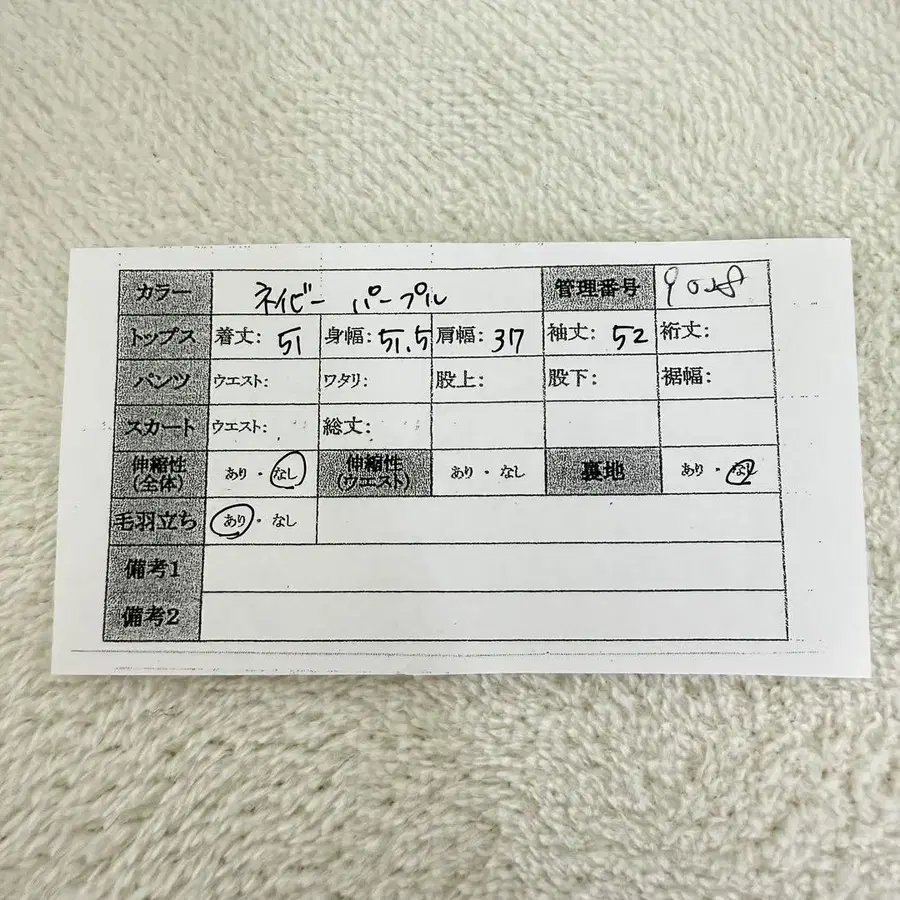 カラー ネイビー パープル 管理番号
トップス 着丈: 51 身幅: 51.5 肩幅: 37 袖丈: 52 裄丈:
パンツ ウエスト: ワタリ: 股上: 股下: 裾幅:
スカート ウエスト: 総丈:
伸縮性 (全体) あり・なし 伸縮性 (ウエスト) あり・なし 裏地 あり・なし
毛羽立ち あり・なし
備考1
備考2